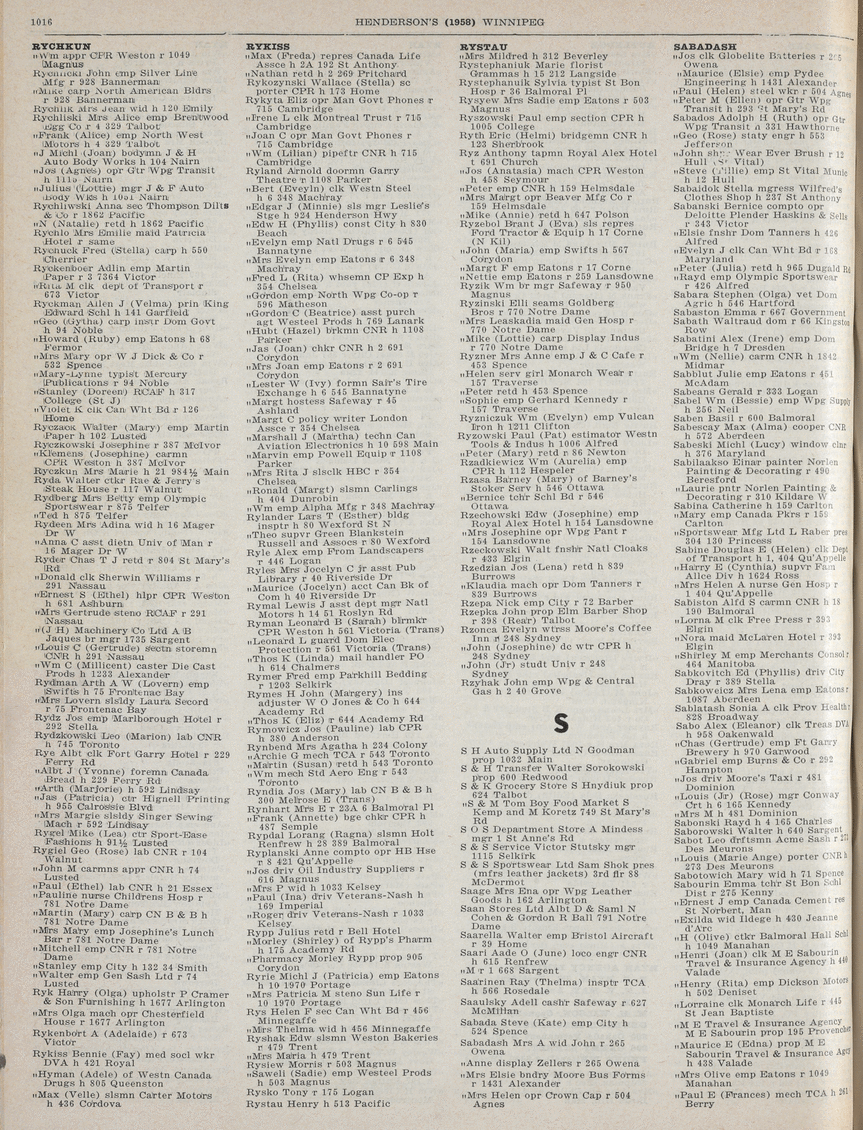 1016
HENDERSON'S (1958) WINNIPEG
RYCHKUN
"Wm appr CPR Weston r 1049
Magnus
Rychlicki John emp Silver Line
Mfg r 928 Bannerman
"Mike carp North American Bldrs
r 928 Bannerman
Rychlik Mrs Jean wid h 120 Emily
Rychliski Mrs Alice emp Brentwood
Egg Co r 4 329 Talbot
"Frank (Alice) emp North West
Motors h 4 329 Talbot
"J Michl (Joan) bodymn J & H
Auto Body Works h 104 Nairn
"Jos (Agnes) opr Gtr Wpg Transit
"Julius (Lottie) mgr J & F Auto
Rychliwski Anna sec Thompson Dilts
& Co r 1862 Pacific
"N (Natalie) retd h 1862 Pacific
Rychlo Mrs Emilie maid Patricia
Hotel r same
Rychuck Fred (Stella) carp h 550
Cherrier
Ryckenboer Adlin emp Martin
Paper r 3 7364 Victor
"Rita M clk dept of Transport r
673 Victor
Ryckman Allen J (Velma) prin King
Edward Schl h 141 Garfield
"Geo (Gytha) carp instr Dom Govt
h 94 Noble
"Howard (Ruby) emp Eatons h 68
Fermor
"Mrs Mary opr W J Dick & Co r
532 Spence
"Mary-Lynne typist Mercury
Publications r 94 Noble
"Stanley (Doreen) RCAF h 317
College (St J)
"Violet K clk Can Wht Bd r 126
Home
Ryczaok Walter (Mary) emp Martin
Paper h 102 Lusted
Ryczkowski Josephine r 387 McIvor
"Klemens (Josephine) carmn
CPR Weston h 387 McIvor
Ryczkun Mrs Marie h 21 984½ Main
Ryda Walter ctkr Rae & Jerry's
Steak House r 117 Walnut
Rydberg Mrs Betty emp Olympic
Sportswear r 875 Telfer
"Ted h 875 Telfer
Rydeen Mrs Adina wid h 16 Mager
Dr W
"Anna C asst dietn Univ of Man r
16 Mager Dr W
Ryder Chas T J retd r 804 St Mary's
Rd
"Donald clk Sherwin Williams r
291 Nassau
"Ernest S (Ethel) hlpr CPR Weston
h 681 Ashburn
"Mrs Gertrude steno RCAF r 291
Nassau
"(J H) Machinery Co Ltd A B
Jaques br mgr 1735 Sargent
"Louis C (Gertrude) sectn storemn
CNR h 291 Nassau
"Wm C (Millicent) caster Die Cast
Prods h 1233 Alexander
Rydman Arth A W (Lovern) emp
Swifts h 75 Frontenac Bay
"Mrs Lovern slsldy Laura Secord
r 75 Frontenac Bay
Rydz Jos emp Marlborough Hotel r
292 Stella
Rydzkowski Leo (Marion) lab CNR
h 745 Toronto
Rye Albt clk Fort Garry Hotel r 229
Ferry Rd
"Albt J (Yvonne) foremn Canada
Bread h 229 Ferry Rd
"Arth (Marjorie) h 592 Lindsay
"Jas (Patricia) ctr Hignell Printing
h 955 Calrossie Blvd
"Mrs Margie slsldy Singer Sewing
Mach r 592 Lindsay
Rygel Mike (Lea) ctr Sport-Ease
Fashions h 91½ Lusted
Rygiel Geo (Rose) lab CNR r 104
Walnut
"John M carmns appr CNR h 74
Lusted
"Paul (Ethel) lab CNR h 21 Essex
"Pauline nurse Childrens Hosp r
781 Notre Dame
"Martin (Mary) carp CN B & B h
781 Notre Dame
"Mrs Mary emp Josephine's Lunch
Bar r 781 Notre Dame
"Mitchell emp CNR r 781 Notre
Dame
"Stanley emp City h 132 34 Smith
"Walter emp Gen Sash Ltd r 74
Lusted
Ryk Harry (Olga) upholstr P Cramer
& Son Furnishing h 1677 Arlington
"Mrs Olga mach opr Chesterfield
House r 1677 Arlington
Rykenbort A (Adelaide) r 673
Victor
Rykiss Bennie (Fay) med socl wkr
DVA h 421 Royal
"Hyman (Adele) of Westn Canada
Drugs h 805 Queenston
"Max (Velle) slsmn Carter Motors
h 436 Cordova
RYKISS
"Max (Freda) repres Canada Life
Assce h 2A 192 St Anthony
"Nathan retd h 2 269 Pritchard
Rykozynski Wallace (Stella) sc
porter CPR h 173 Home
Rykyta Eliz opr Man Govt Phones r
715 Cambridge
"Irene L clk Montreal Trust r 715
Cambridge
"Joan C opr Man Govt Phones r
715 Cambridge
"Wm (Lilian) pipeftr CNR h 715
Cambridge
Ryland Arnold doormn Garry
Theatre r 1108 Parker
"Bert (Eveyln) clk Westn Steel
h 6 348 Machray
"Edgar J (Minnie) sls mgr Leslie's
Stge h 924 Henderson Hwy
"Edw H (Phyllis) const City h 830
Beach
"Evelyn emp Natl Drugs r 6 545
Bannatyne
"Mrs Evelyn emp Eatons r 6 348
Machray
"Fred L (Rita) whsemn CP Exp h
354 Chelsea
"Gordon emp North Wpg Co-op r
596 Matheson
"Gordon C (Beatrice) asst purch
agt Westeel Prods h 769 Lanark
"Hubt (Hazel) brkmn CNR h 1108
Parker
"Jas (Joan) chkr CNR h 2 691
Corydon
"Mrs Joan emp Eatons r 2 691
Corydon
"Lester W (Ivy) formn Sair's Tire
Exchange h 6 545 Bannatyne
"Margt hostess Safeway r 45
Ashland
"Margt C policy writer London
Assce r 354 Chelsea
"Marshall J (Martha) techn Can
Aviation Electronics h 10 598 Main
"Marvin emp Powell Equip r 1108
Parker
"Mrs Rita J slsclk HBC r 354
Chelsea
"Ronald (Margt) slsmn Carlings
h 404 Dunrobin
"Wm emp Alpha Mfg r 348 Machray
Rylander Lars T (Esther) bldg
insptr h 80 Wexford St N
"Theo supvr Green Blankstein
Russell and Assocs r 80 Wexford
Ryle Alex emp From Landscapers
r 446 Logan
Ryles Mrs Jocelyn C jr asst Pub
Library r 40 Riverside Dr
"Maurice (Jocelyn) acct Can Bk of
Com h 40 Riverside Dr
Rymal Lewis J asst dept mgr Natl
Motors h 14 51 Roslyn Rd
Ryman Leonard B (Sarah) blrmkr
CPR Weston h 561 Victoria (Trans)
"Leonard L guard Dom Elec
Protection r 561 Victoria (Trans)
"Thos K (Linda) mail handler PO
h 614 Chalmers
Rymer Fred emp Parkhill Bedding
r 1203 Selkirk
Rymes H John (Margery) ins
adjuster W O Jones & Co h 644
Academy Rd
"Thos K (Eliz) r 644 Academy Rd
Rymowicz Jos (Pauline) lab CPR
h 380 Anderson
Rynbend Mrs Agatha h 234 Colony
"Archie G mech TCA r 543 Toronto
"Martin (Susan) retd h 543 Toronto
"Wm mech Std Aero Eng r 543
Toronto
Ryndia Jos (Mary) lab CN B & B h
300 Melrose E (Trans)
Rynhart Mrs E r 23A 6 Balmoral Pl
"Frank (Annette) bge chkr CPR h
487 Semple
Rypdal Lorang (Ragna) slsmn Holt
Renfrew h 28 389 Balmoral
Ryplanski Anne compto opr HB Hse
r 8 421 Qu'Appelle
"Jos driv Oil Industry Suppliers r
616 Magnus
"Mrs P wid h 1033 Kelsey
"Paul (Ina) driv Veterans-Nash h
169 Imperial
"Roger driv Veterans-Nash r 1033
Kelsey
Rypp Julius retd r Bell Hotel
"Morley (Shirley) of Rypp's Pharm
h 175 Academy Rd
"Pharmacy Morley Rypp prop 905
Corydon
Ryrie Michl J (Patricia) emp Eatons
h 10 1970 Portage
"Mrs Patricia M steno Sun Life r
10 1970 Portage
Rys Helen F sec Can Wht Bd r 456
Minnegaffe
"Mrs Thelma wid h 456 Minnegaffe
Ryshak Edw slsmn Weston Bakeries
r 479 Trent
"Mrs Maria h 479 Trent
Rysiew Morris r 503 Magnus
"Saweli (Sadie) emp Westeel Prods
h 503 Magnus
Rysko Tony r 175 Logan
Rystau Henry h 513 Pacific
RYSTAU
"Mrs Mildred h 312 Beverley
Rystephaniuk Marie florist
Grammas h 15 212 Langside
Rystephanuik Sylvia typist St Bon
Hosp r 36 Balmoral Pl
Rysyew Mrs Sadie emp Eatons r 503
Magnus
Ryszowski Paul emp section CPR h
1005 College
Ryth Eric (Helmi) bridgemn CNR h
123 Sherbrook
Ryz Anthony tapmn Royal Alex Hotel
r 691 Church
"Jos (Anatasia) mach CPR Weston
h 458 Seymour
"Peter emp CNR h 159 Helmsdale
"Mrs Margt opr Beaver Mfg Co r
159 Helmsdale
"Mike (Annie) retd h 647 Polson
Ryzebol Brant J (Eva) sls repres
Ford Tractor & Equip h 17 Corne
(N Kil)
"John (Maria) emp Swifts h 567
Corydon
"Margt F emp Eatons r 17 Corne
"Nettie emp Eatons r 259 Lansdowne
Ryzik Wm br mgr Safeway r 950
Magnus
Ryzinski Elli seams Goldberg
Bros r 770 Notre Dame
"Mrs Leaskadia maid Gen Hosp r
770 Notre Dame
"Mike (Lottie) carp Display Indus
r 770 Notre Dame
Ryzner Mrs Anne emp J & C Cafe r
453 Spence
"Helen serv girl Monarch Wear r
157 Traverse
"Peter retd h 453 Spence
"Sophie emp Gerhard Kennedy r
157 Traverse
Ryzniczuk Wm (Evelyn) emp Vulcan
Iron h 1211 Clifton
Ryzowski Paul (Pat) estimator Westn
Tools & Indus h 1006 Alfred
"Peter (Mary) retd r 86 Newton
Rzadkiewicz Wm (Aurelia) emp
CPR h 112 Hespeler
Rzasa Barney (Mary) of Barney's
Stoker Serv h 546 Ottawa
"Bernice tchr Schl Bd r 546
Ottawa
Rzechowski Edw (Josephine) emp
Royal Alex Hotel h 154 Lansdowne
"Mrs Josephine opr Wpg Pant r
154 Lansdowne
Rzeckowski Walt fnshr Natl Cloaks
r 433 Elgin
Rzedzian Jos (Lena) retd h 839
Burrows
"Klaudia mach opr Dom Tanners r
839 Burrows
Rzepa Nick emp City r 72 Barber
Rzepka John prop Elm Barber Shop
r 398 (Rear) Talbot
Rzonca Evelyn wtrss Moore's Coffee
Inn r 248 Sydney
"John (Josephine) dc wtr CPR h
248 Sydney
"John (Jr) studt Univ r 248
Sydney
Rzyhak John emp Wpg & Central
Gas h 2 40 Grove
S
S H Auto Supply Ltd N Goodman
prop 1032 Main
S & H Transfer Walter Sorokowski
prop 600 Redwood
S & K Grocery Store S Hnydiuk prop
624 Talbot
"S & M Tom Boy Food Market S
Kemp and M Koretz 749 St Mary's
Rd
S O S Department Store A Mindess
mgr 1 St Anne's Rd
S & S Service Victor Stutsky mgr
1115 Selkirk
S & S Sportswear Ltd Sam Shok pres
(mfrs leather jackets) 3rd flr 88
McDermot
Saage Mrs Ena opr Wpg Leather
Goods h 162 Arlington
Saan Stores Ltd Albt D & Saml N
Cohen & Gordon R Ball 791 Notre
Dame
Saarella Walter emp Bristol Aircraft
r 39 Home
Saari Aade O (June) loco engr CNR
h 615 Renfrew
"M r 1 668 Sargent
Saarinen Ray (Thelma) insptr TCA
h 566 Rosedale
Saaulsky Adell cashr Safeway r 627
McMillan
Sabada Steve (Kate) emp City h
524 Spence
Sabadash Mrs A wid John r 265
Owena
"Anne display Zellers r 265 Owena
"Mrs Elsie bndry Moore Bus Forms
r 1431 Alexander
"Mrs Helen opr Crown Cap r 504
Agnes
SABADASH
"Jos clk Globelite Batteries r 265
Owena
"Maurice (Elsie) emp Pydee
Engineering h 1431 Alexander
"Paul (Helen) steel wkr r 504 Agnes
"Peter M (Ellen) opr Gtr Wpg
Transit h 293 St Mary's Rd
Sabados Adolph H (Ruth) opr Gtr
Wpg Transit h 331 Hawthorne
"Geo (Rose) staty engr h 553
Jefferson
"John Wear Ever Brush r 12
Hull Vital)
"Steve emp St Vital Munic
h 12 Hull
Sabaidok Stella mgress Wilfred's
Clothes Shop h 237 St Anthony
Sabanski Bernice compto opr
Deloitte Plender Haskins & Sells
r 343 Victor
"Elsie fnshr Dom Tanners h 426
Alfred
"Evelyn J clk Can Wht Bd r 168
Maryland
"Peter (Julia) retd h 965 Dugald Rd
"Rayd emp Olympic Sportswear
r 426 Alfred
Sabara Stephen (Olga) vet Dom
Agric h 546 Hartford
Sabaston Emma r 667 Government
Sabath Waltraud dom r 66 Kingston
Row
Sabatini Alex (Irene) emp Dom
Bridge h 7 Dresden
"Wm (Nellie) carm CNR h 1842
Midmar
Sabblut Julie emp Eatons r 451
McAdam
Sabeans Gerald r 333 Logan
Sabel Wm (Bessie) emp Wpg Supply
h 256 Neil
Saben Basil r 600 Balmoral
Sabescay Max (Alma) cooper CNR
h 572 Aberdeen
Sabeski Michl (Lucy) window clnr
h 376 Maryland
Sabilaakso Einar painter Norlen
Painting & Decorating r 490
Beresford
"Laurie pntr Norlen Painting &
Decorating r 310 Kildare W
Sabina Catherine h 159 Carlton
"Mary emp Canada Pkrs r 159
Carlton
"Sportswear Mfg Ltd L Raber pres
304 130 Princess
Sabine Douglas E (Helen) clk Dept
of Transport h 1, 404 Qu'Appelle
"Harry E (Cynthia) supvr Fam
Allce Div h 1624 Ross
"Mrs Helen A nurse Gen Hosp r
1 404 Qu'Appelle
Sabiston Alfd S carmn CNR h 18
190 Balmoral
"Lorna M clk Free Press r 393
Elgin
"Nora maid McLaren Hotel r 393
Elgin
"Shirley M emp Merchants Consol r
464 Manitoba
Sabkovitch Ed (Phyllis) driv City
Dray r 389 Stella
Sabkoweicz Mrs Lena emp Eatons r
1087 Aberdeen
Sablatash Sonia A clk Prov Health r
828 Broadway
Sabo Alex (Eleanor) clk Treas DVA
h 958 Oakenwald
"Chas (Gertrude) emp Ft Garry
Brewery h 970 Garwood
"Gabriel emp Burns & Co r 292
Hampton
"Jos driv Moore's Taxi r 481
Dominion
"Louis (Jr) (Rose) mgr Conway
Crt h 6 165 Kennedy
"Mrs M h 481 Dominion
Sabonski Rayd h 4 165 Charles
Saborowski Walter h 640 Sargent
Sabot Leo drftsmn Acme Sash r 273
Des Meurons
"Louis (Marie Ange) porter CNR h
273 Des Meurons
Sabotowich Mary wid h 71 Spence
Sabourin Emma tchr St Bon Schl
Dist r 275 Kenny
"Ernest J emp Canada Cement res
St Norbert, Man
"Exilda wid Ildege h 430 Jeanne
d'Arc
"H (Olive) ctkr Balmoral Hall Schl
h 1049 Manahan
"Henri (Joan) clk M E Sabourin
Travel & Insurance Agency h 440
Valade
"Henry (Rita) emp Dickson Motors
h 502 Deniset
"Lorraine clk Monarch Life r 445
St Jean Baptiste
"M E Travel & Insurance Agency
M E Sabourin prop 195 Provencher
"Maurice E (Edna) prop M E
Sabourin Travel & Insurance Agcy
h 438 Valade
"Mrs Olive emp Eatons r 1049
Manahan
"Paul E (Frances) mech TCA h 261
Berry